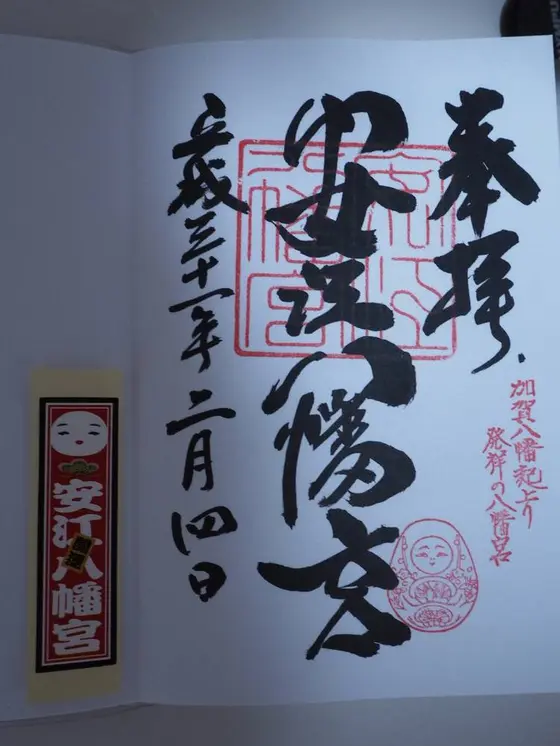 奉拝
加賀八幡起上り
発祥の八幡宮
安江八幡宮
安江八幡宮
平成三十一年二月四日
安江八幡宮